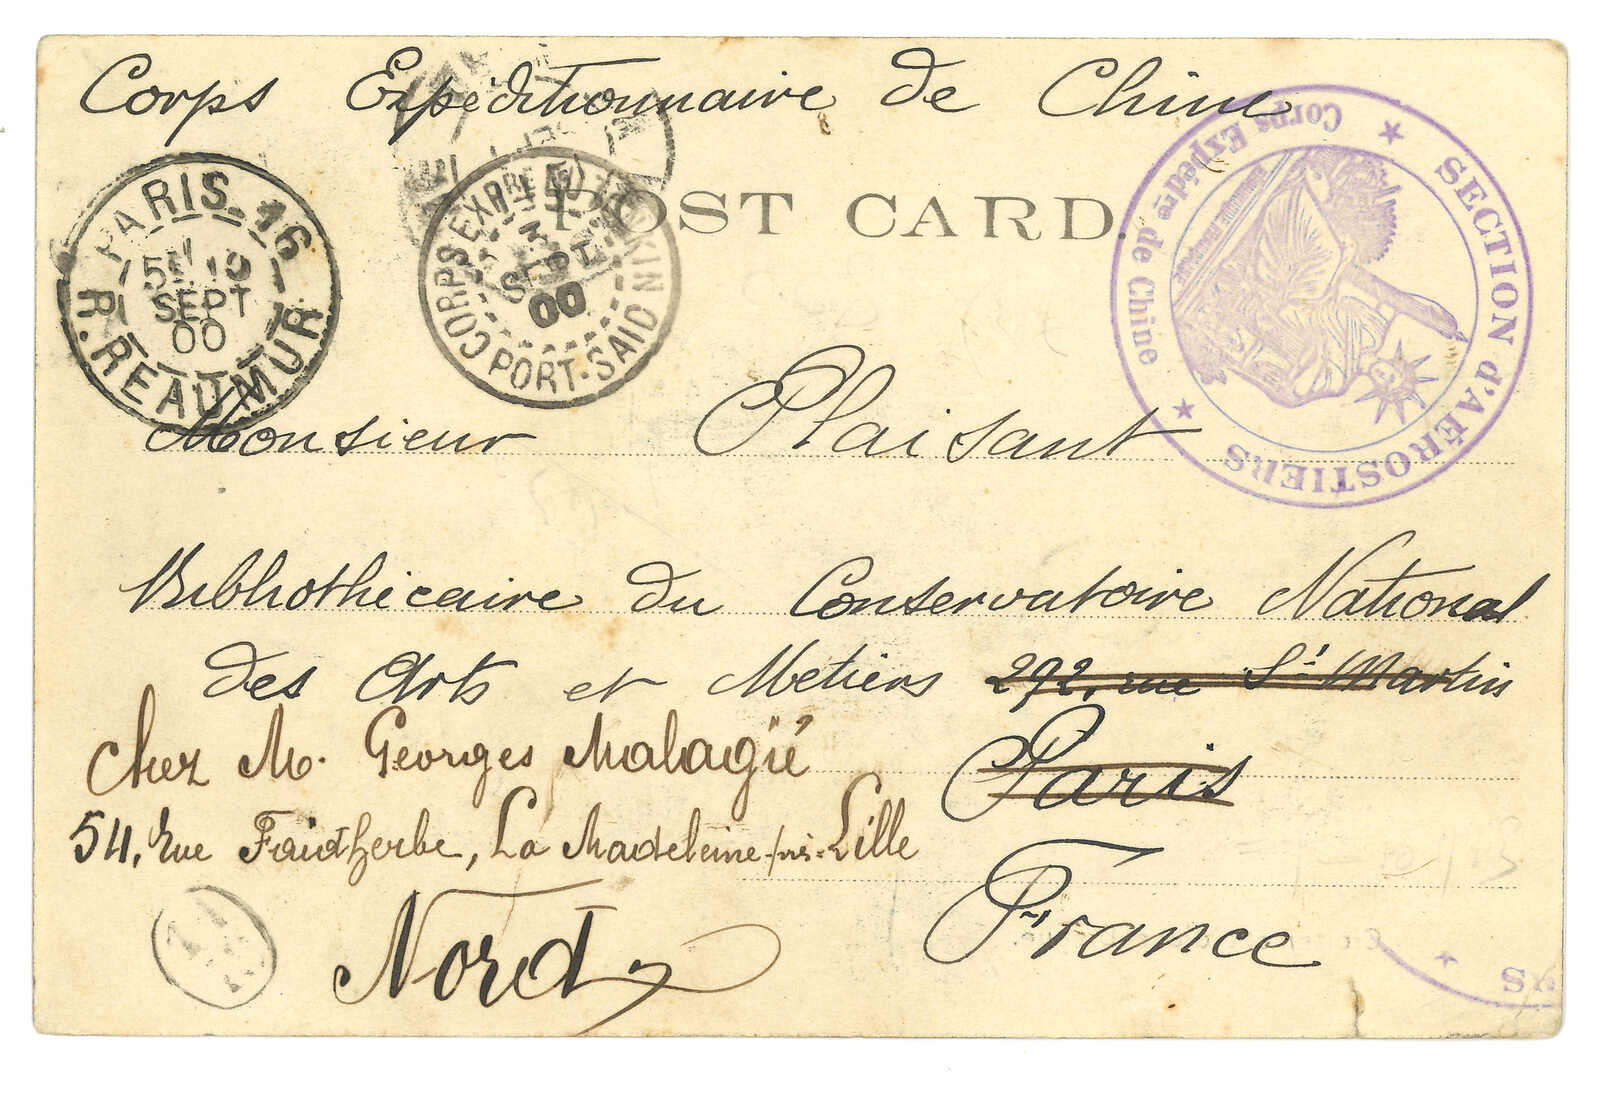 Corps Expéditionnaire de Chine
POST CARD
PARIS. 16
SEPT
00
R. REAUMUR
CORPS EXP
3
SEPT
00
PORT-SAID
SECTION d'AÉROSTIERS
Corps Expédre de Chine
Monsieur Plaisant
Bibliothécaire du Conservatoire National
des Arts et Metiers 292, rue St Martin
Chez M. Georges Malagié
Paris
54, rue Faidherbe, La Madeleine-près-Lille
France
Nord
RS